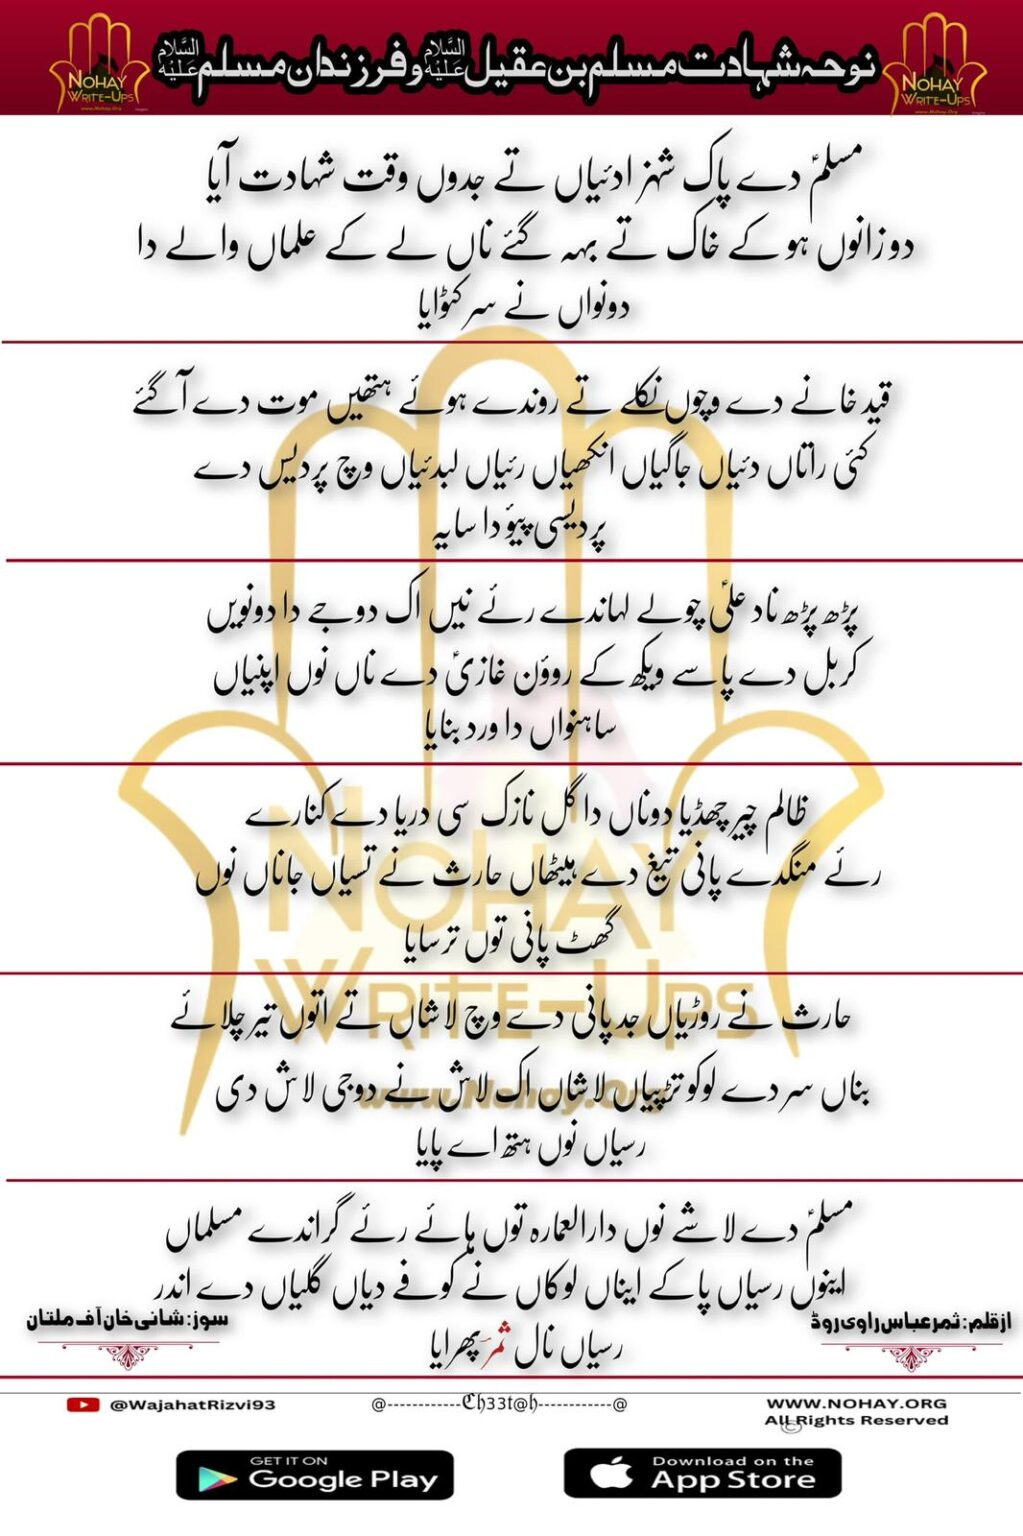 NOHAY
WRITE-UPS
www.Nohay.Org
نوحہ شہادت مسلم بن عقیل عَلَیْہِ السَّلَام و فرزندان مسلم عَلَیْہِ السَّلَام
NOHAY
WRITE-UPS
www.Nohay.Org
مسلمؑ دے پاک شہزادئیاں تے جدوں وقت شہادت آیا
دو زانوں ہو کے خاک تے بہہ گئے ناں لے کے علماں والے دا
دونواں نے سر کٹوایا
قید خانے دے وچوں نکلے تے روندے ہوئے ہتھیں موت دے آ گئے
کئی راتاں دئیاں جاگیاں انکھیاں رئیاں لبدئیاں وچ پردیس دے
پردیسی پیؤ دا سایہ
پڑھ پڑھ ناد علیؑ چولے لہاندے رئے نیں اک دوجے دا دونویں
کربل دے پاسے ویکھ کے روؤن غازیؑ دے ناں نوں اپنیاں
ساہنواں دا ورد بنایا
ظالم چیر چھڈیا دوناں دا گل نازک سی دریا دے کنارے
رئے منگدے پانی تیغ دے ہیٹھاں حارث نے تسیاں جاناں نوں
گھٹ پانی توں ترسایا
NOHAY
WRITE-UPS
www.Nohay.Org
حارث نے روڑیاں جد پانی دے وچ لاشاں تے اتوں تیر چلائے
بناں سر دے لوکو تڑپیاں لاشاں اک لاش نے دوجی لاش دی
رسیاں نوں ہتھ اے پایا
مسلمؑ دے لاشے نوں دارالعمارہ توں ہائے رئے گراندے مسلماں
اینوں رسیاں پا کے ایناں لوکاں نے کوفے دیاں گلیاں دے اندر
رسیاں نال ثمرؔ پھرایا
از قلم: ثمر عباس راوی روڈ
سوز: شانی خان آف ملتان
@WajahatRizvi93
@-----------Ch33t@h-----------@
WWW.NOHAY.ORG
All Rights Reserved
©
GET IT ON
Google Play
Download on the
App Store